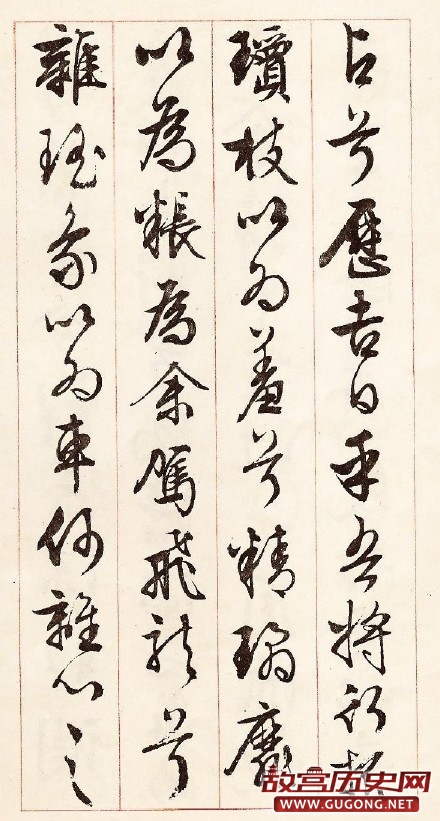 占兮歷吉日乎吾將行折
瓊枝以為羞兮精瓊爢
以為粻為余駕飛龍兮
雜瑤象以為車何離心之
故宫历史网
WWW.GUGONG.NET